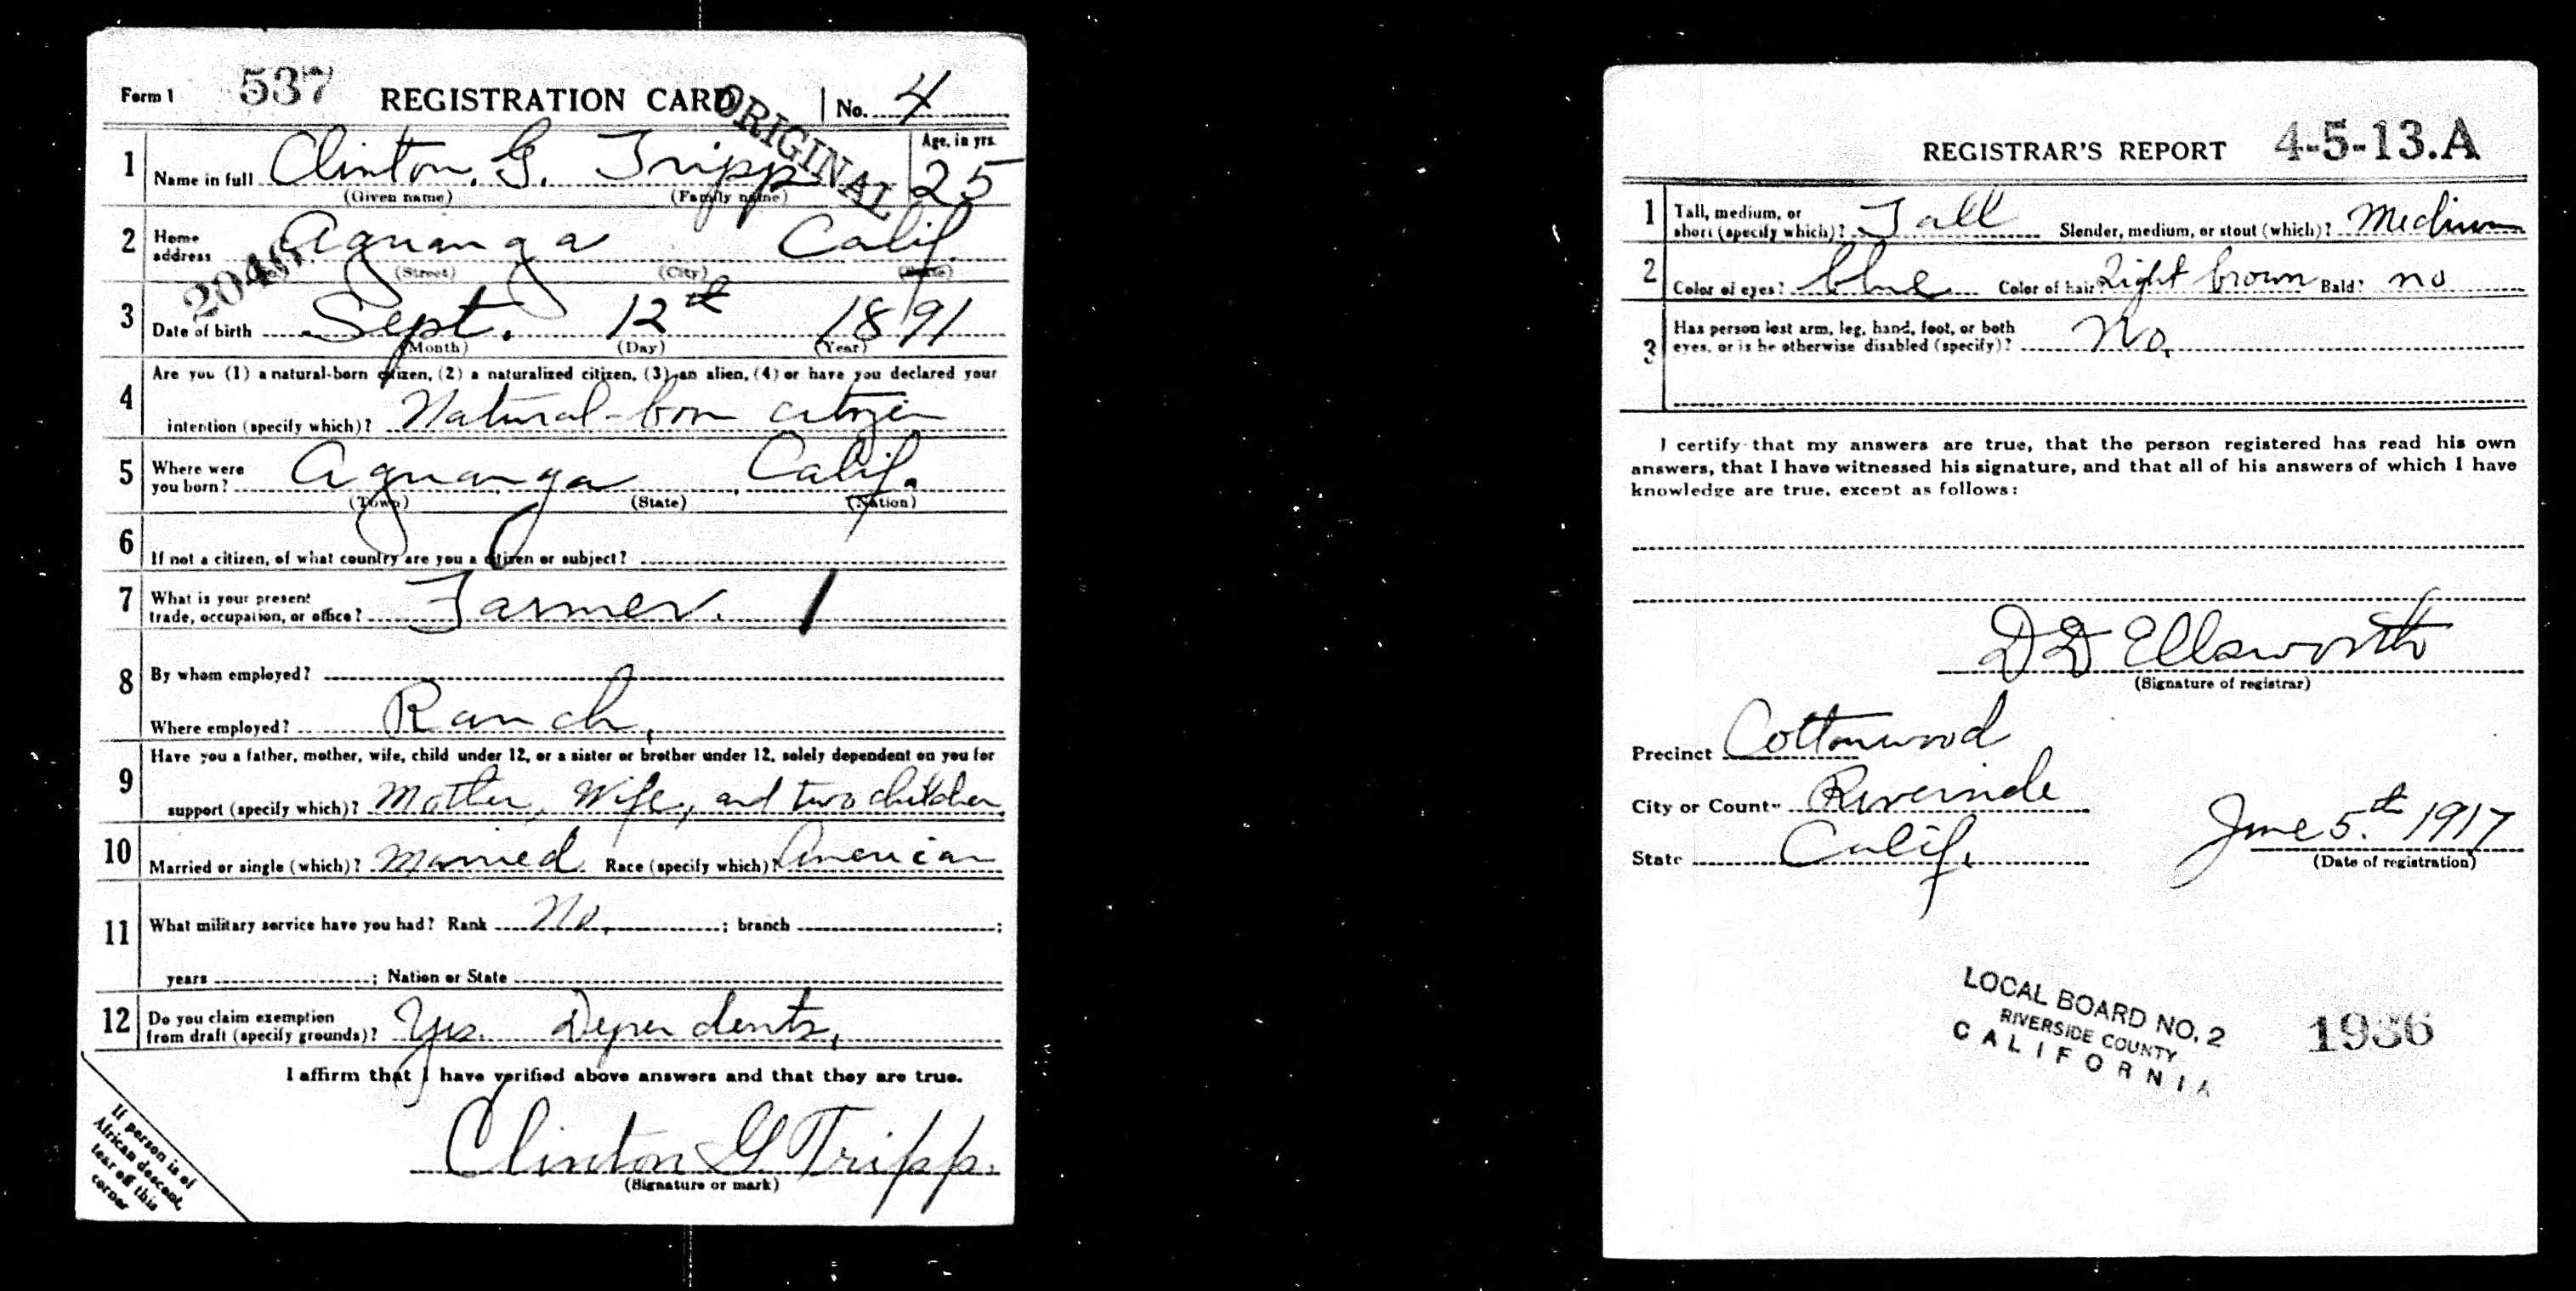 Form 1 537 REGISTRATION CARD No. 4
ORIGINAL
1 Name in full Clinton. G. Tripp Age, in yrs. 25
(Given name) (Family name)
2 Home address Aguanga Calif.
(Street) (City) (State)
3 Date of birth Sept. 12th 1891
(Month) (Day) (Year)
Are you (1) a natural-born citizen, (2) a naturalized citizen, (3) an alien, (4) or have you declared your
4 intention (specify which)? Natural-born citizen
5 Where were you born? Aguanga, Calif.
(Town) (State) (Nation)
6 If not a citizen, of what country are you a citizen or subject?
7 What is your present trade, occupation, or office? Farmer. 1
8 By whom employed?
Where employed? Ranch,
Have you a father, mother, wife, child under 12, or a sister or brother under 12, solely dependent on you for
9 support (specify which)? Mother, Wife, and two children
10 Married or single (which)? Married Race (specify which)? American
11 What military service have you had? Rank No. ; branch ;
years ; Nation or State
12 Do you claim exemption from draft (specify grounds)? Yes. Dependents,
I affirm that I have verified above answers and that they are true.
Clinton G Tripp.
(Signature or mark)
If person is of
African descent,
tear off this
corner
REGISTRAR'S REPORT 4-5-13.A
1 Tall, medium, or short (specify which)? Tall Slender, medium, or stout (which)? Medium
2 Color of eyes? blue Color of hair Light brown Bald? no
3 Has person lost arm, leg, hand, foot, or both eyes, or is he otherwise disabled (specify)? No.
I certify that my answers are true, that the person registered has read his own
answers, that I have witnessed his signature, and that all of his answers of which I have
knowledge are true, except as follows:
D D Ellsworth
(Signature of registrar)
Precinct Cottonwood
City or County Riverside
State Calif. June 5.th 1917
(Date of registration)
LOCAL BOARD NO. 2
RIVERSIDE COUNTY
CALIFORNIA
1936